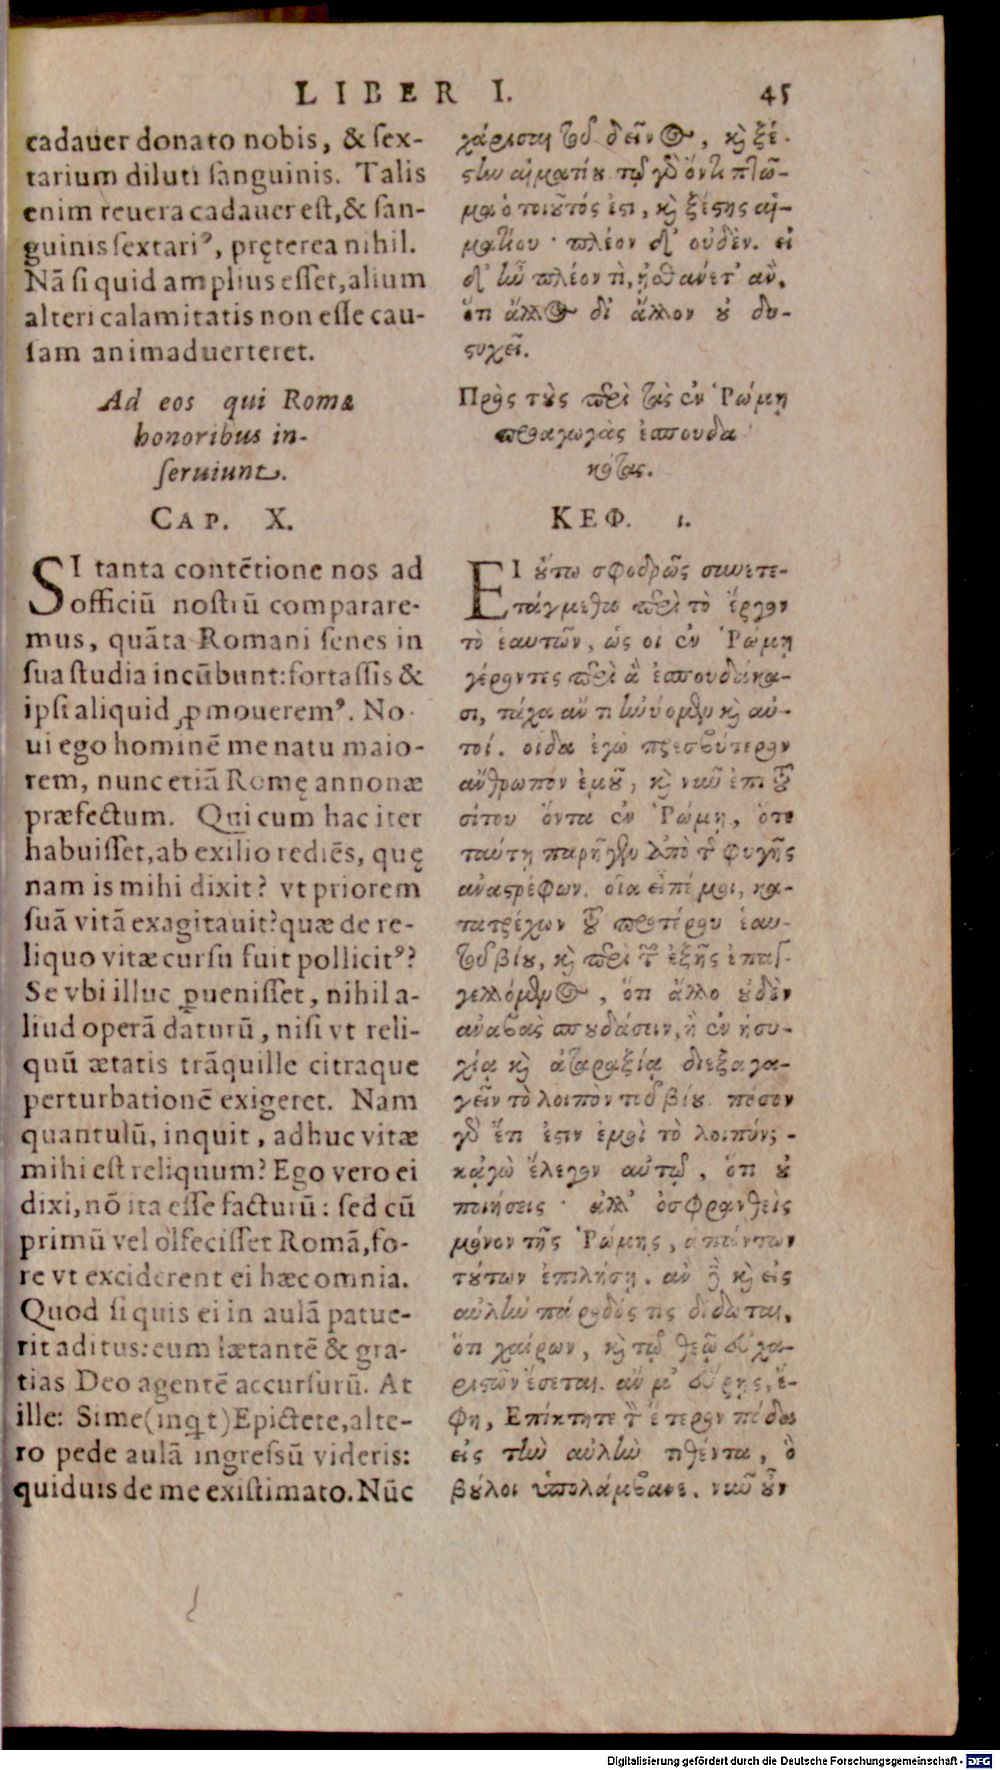 LIBER I. 45
cadauer donato nobis, & ſex-
tarium diluti ſanguinis. Talis
enim reuera cadauer eſt, & ſan-
guinis ſextariꝰ, pręterea nihil.
Nā ſi quid amplius eſſet, alium
alteri calamitatis non eſſe cau-
ſam animaduerteret.
Ad eos qui Romæ
honoribus in-
ſeruiunt.
CAP. X.
SI tanta contētione nos ad
officiū noſtrū comparare-
mus, quāta Romani ſenes in
ſua ſtudia incūbunt: fortaſſis &
ipſi aliquid ꝓmoueremꝰ. No-
ui ego hominē me natu maio-
rem, nunc etiā Romę annonæ
præfectum. Qui cum hac iter
habuiſſet, ab exilio rediēs, quę
nam is mihi dixit? vt priorem
ſuā vitā exagitauit? quæ de re-
liquo vitæ curſu fuit pollicitꝰ?
Se vbi illuc ꝑueniſſet, nihil a-
liud operā daturū, niſi vt reli-
quū ætatis trāquille citraque
perturbationē exigeret. Nam
quantulū, inquit, adhuc vitæ
mihi eſt reliquum? Ego vero ei
dixi, nō ita eſſe facturū: ſed cū
primū vel olfeciſſet Romā, fo-
re vt exciderent ei hæc omnia.
Quod ſi quis ei in aulā patue-
rit aditus: eum lætantē & gra-
tias Deo agentē accurſurū. At
ille: Si me (inq̄t) Epictete, alte-
ro pede aulā ingreſsū videris:
quiduis de me exiſtimato. Nūc
χάρισαι τοῦ δεῖνος, καὶ ξέ-
στην αἱματίου. τῷ γὰρ ὄντι πτῶ-
μα ὁ τοιοῦτός ἐστι, καὶ ξέστης αἱ-
ματίου· πλέον δ' οὐδέν. εἰ
δ' ἦν πλέον τὶ, ᾐσθάνετ' ἂν,
ὅτι ἄλλος δι' ἄλλον οὐ δυ-
στυχεῖ.
Πρὸς τοὺς περὶ τὰς ἐν Ῥώμῃ
προαγωγὰς ἐσπουδα
κότας.
ΚΕΦ. ι.
ΕΙ οὕτω σφοδρῶς συνετε-
τάγμεθα περὶ τὸ ἔργον
τὸ ἑαυτῶν, ὡς οἱ ἐν Ῥώμῃ
γέροντες περὶ ἃ ἐσπουδάκα-
σι, τάχα ἄν τι ἠνύομεν καὶ αὐ-
τοί. οἶδα ἐγὼ πρεσβύτερον
ἄνθρωπον ἐμοῦ, καὶ νῦν ἐπὶ τοῦ
σίτου ὄντα ἐν Ῥώμῃ, ὅτε
ταύτῃ παρῆγεν ἀπὸ τῆς φυγῆς
ἀναστρέφων. οἷα εἶπέ μοι, κα-
τατρέχων τοῦ προτέρου ἑαυ-
τοῦ βίου, καὶ περὶ τῶν ἑξῆς ἐπαγ-
γελλόμενος, ὅτι ἄλλο οὐδὲν
ἀναβὰς σπουδάσειν, ἢ ἐν ἡσυ-
χίᾳ καὶ ἀταραξίᾳ διεξαγα-
γεῖν τὸ λοιπὸν τοῦ βίου. πόσον
γὰρ ἔτι ἐστὶν ἐμοὶ τὸ λοιπόν; -
κᾀγὼ ἔλεγον αὐτῷ, ὅτι οὐ
ποιήσεις· ἀλλ' ὀσφρανθεὶς
μόνον τῆς Ῥώμης, ἁπάντων
τούτων ἐπιλήσῃ. ἂν δὲ καὶ εἰς
αὐλὴν πάροδός τις δίδωται,
ὅτι χαίρων, καὶ τῷ θεῷ εὐχα-
ριστῶν ἔσεται. ἄν μ' εὕρῃς, ἔ-
φη, Ἐπίκτητε τὸν ἕτερον πόδα
εἰς τὴν αὐλὴν τιθέντα, ὃ
βούλοι ὑπολάμβανε. νῦν οὖν
Digitalisierung gefördert durch die Deutsche Forschungsgemeinschaft - DFG